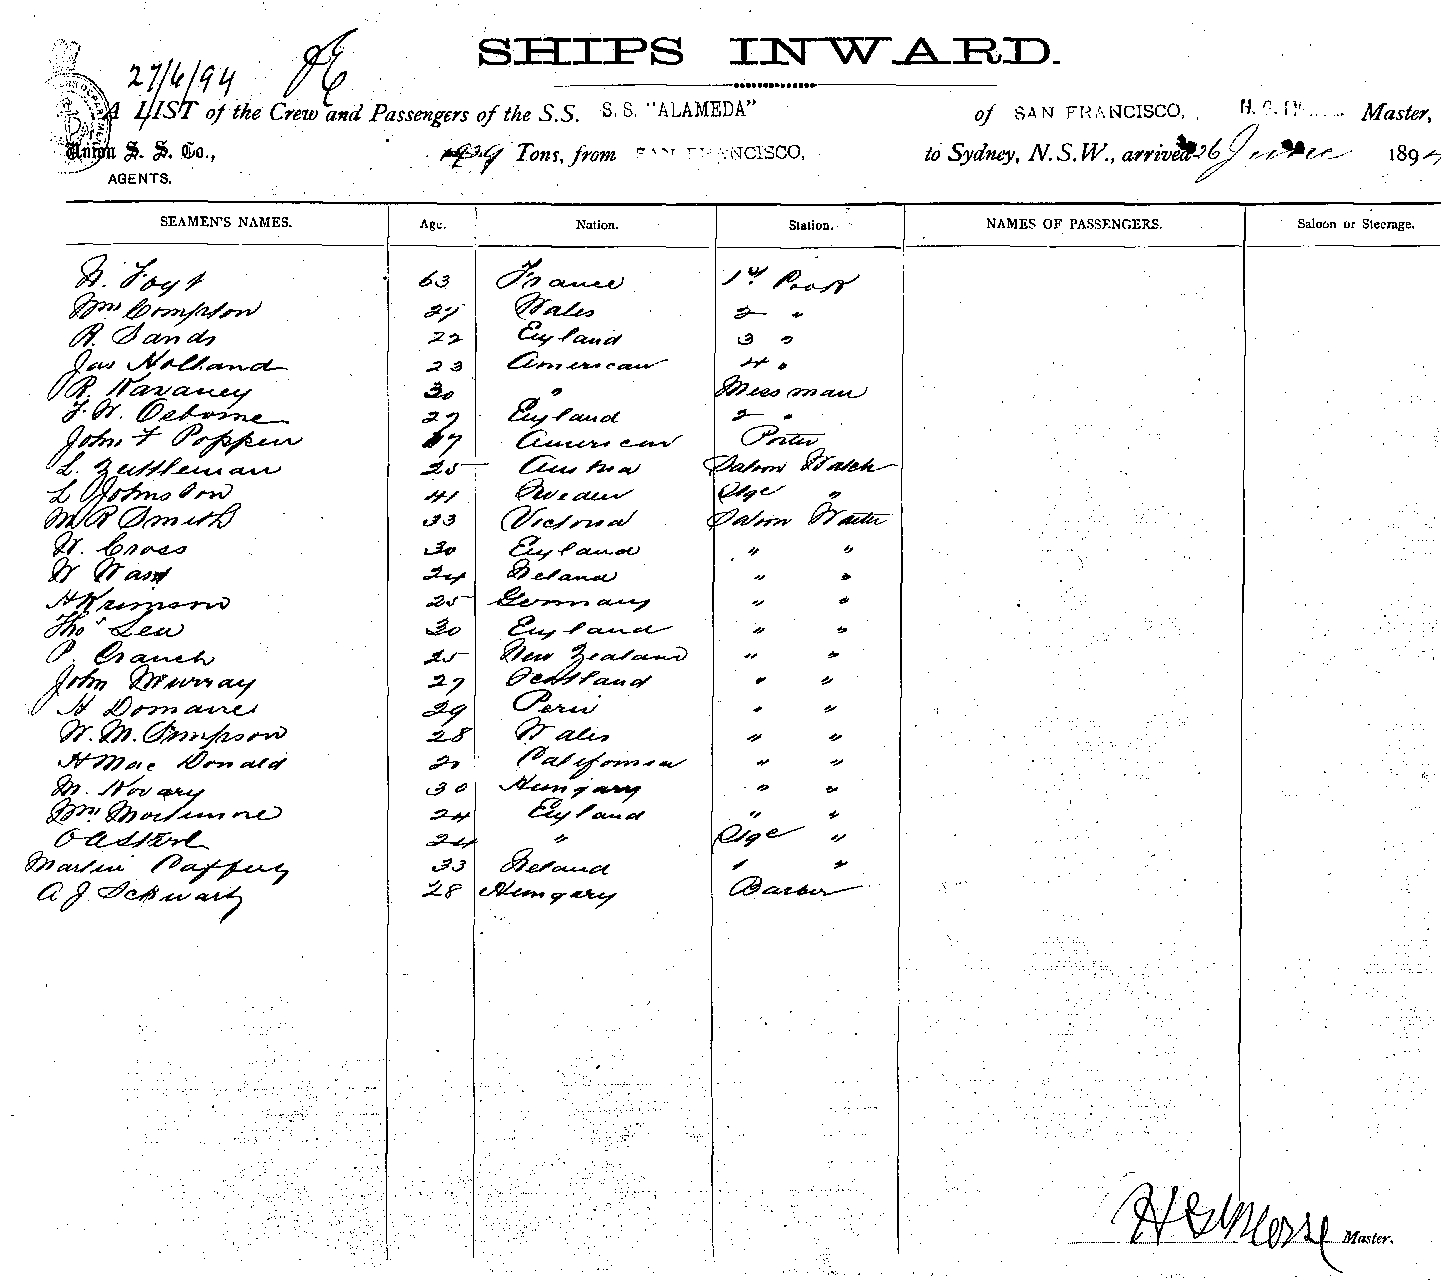 SHIPS INWARD.
27/6/94
A LIST of the Crew and Passengers of the S.S. S. S. "ALAMEDA" of SAN FRANCISCO, Master,
Union S. S. Co., 1939 Tons, from SAN FRANCISCO, to Sydney, N.S.W., arrived 26 June 1894
AGENTS.
SEAMEN'S NAMES. Age. Nation. Station. NAMES OF PASSENGERS. Saloon or Steerage.
63 France 1st Cook
Wm Compton 27 Wales 2 "
R. Sands 22 England 3 "
Jas Holland 23 American 4 "
R. Kavaney 30 " Messman
F. W. Osborne 27 England 2 "
John F Popper 17 American Porter
L. 25 Austria Saloon Watch
L Johnston 41 Sweden Stge "
M R Smith 33 Victoria Saloon Waiter
W. Cross 30 England " "
W Ward 24 Ireland " "
H Krimson 25 Germany " "
Thos Lea 30 England " "
P. Crauch 25 New Zealand " "
John Murray 27 Scotland " "
H Domaire 29 Peru " "
W. M. Simpson 28 Wales " "
H Mac Donald 21 California " "
M. Novary 30 Hungary " "
Wm Mortimore 24 England " "
24 " Stge "
Martin Caffery 33 Ireland " "
A J Schwartz 28 Hungary Barber
H G Morse Master.